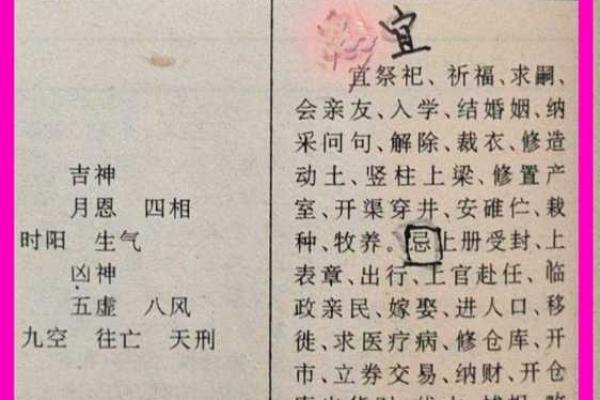 吉神
月恩 四相
时阳 生气
凶神
五虚 八风
九空 往亡 天刑
宜
宜祭祀、祈福、求嗣、
会亲友、入学、结婚姻、纳
采问句、解除、裁衣、修造
动土、竖柱上梁、修置产
室、开渠穿井、安碓伫、栽
种、牧养。忌上册受封、上
表章、出行、上官赴任、临
政亲民、嫁娶、进人口、移
徙、求医疗病、修仓库、开
市、立券交易、纳财、开仓